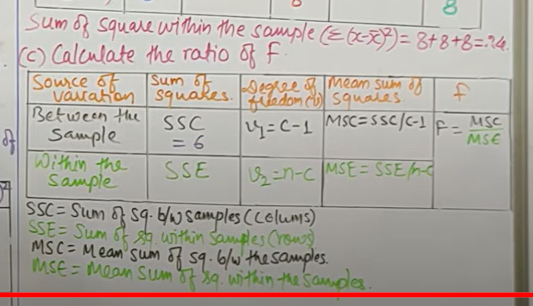 8
8
Sum of square within the sample (Σ(x-x̄)²) = 8+8+8=24
(c) Calculate the ratio of F
Source of variation | Sum of squares. | Degree of freedom(v) | Mean sum of squares | F
Between the Sample | SSC = 6 | v₁=c-1 | MSC=SSC/c-1 | F = MSC/MSE
Within the Sample | SSE | v₂=n-c | MSE = SSE/n-c
of
SSC = Sum of sq. b/w samples (colums)
SSE = Sum of sq. within Samples (rows)
MSC = Mean sum of sq. b/w the samples.
MSE = Mean Sum of sq. within the Samples.